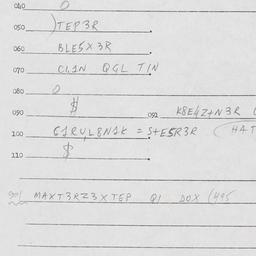 040 0
050 )TEP3R
060 BLE5X3R
070 CL1N QGL TIN
080 0
$
090 091 K8E4Z+N3R (
100 G1RYL8N1K = S+E5R3R (HAT
$
110
901 MAXT3RZ3XTEP Q1 DOX (495